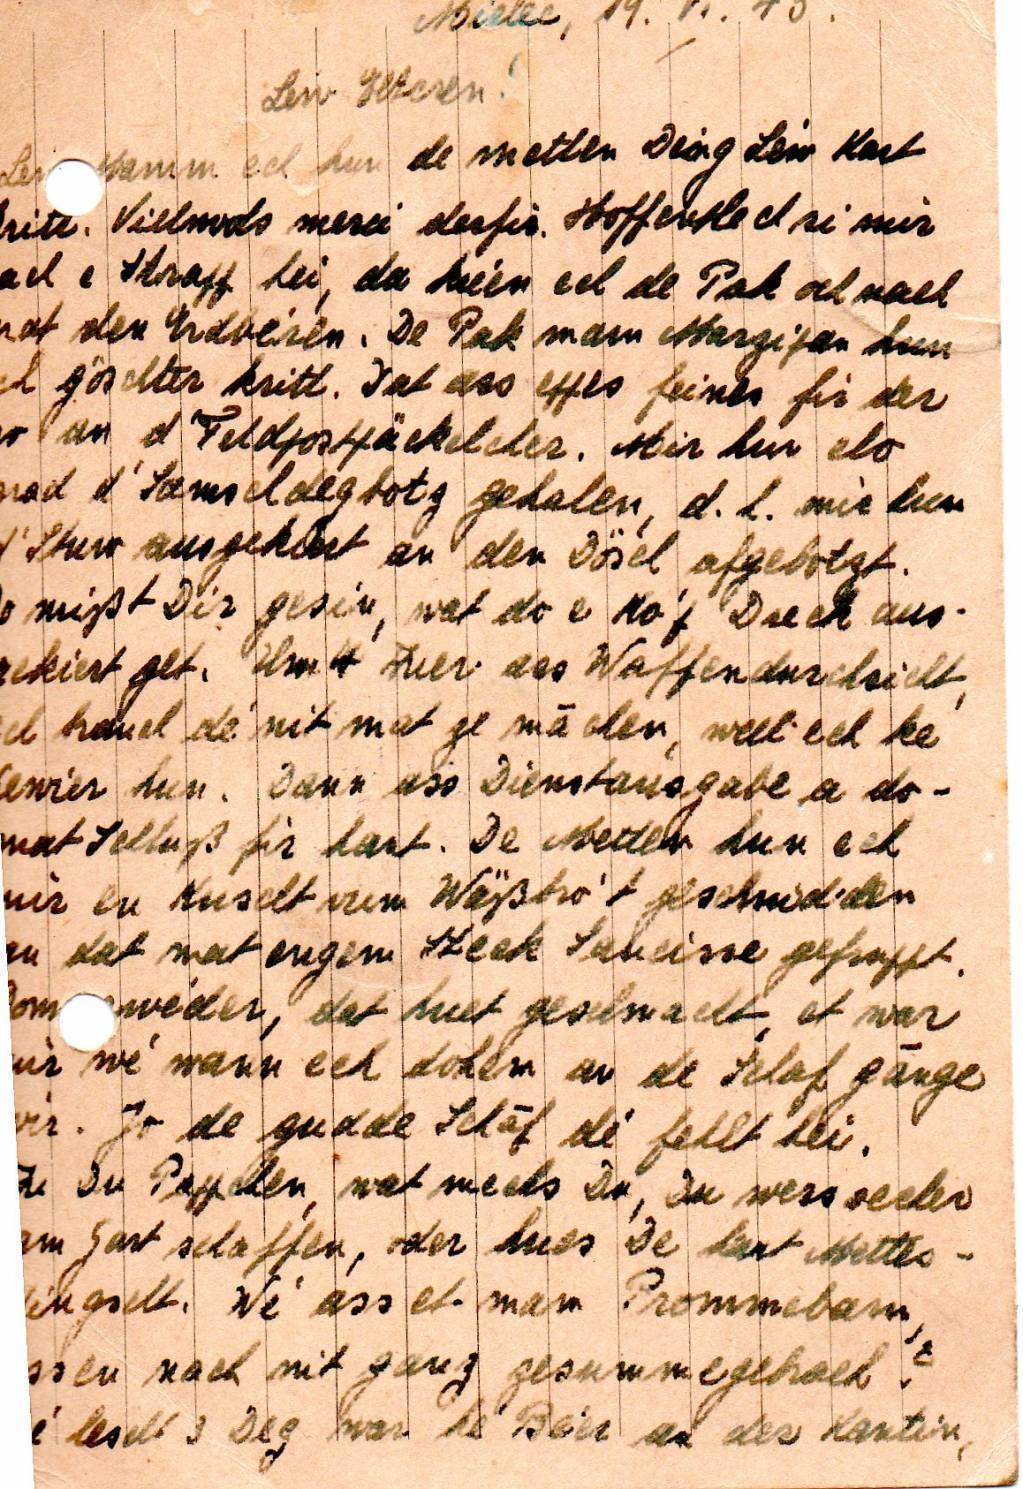 Mielec, 19. VI. 43.
Leiw Elteren!
Leiw Mamm ech hun de metten Deing Leiw Kart
kritt. Villmods merci derfir. Hoffentlech si mir
nach e Strapp hei, da kréen ech de Pak och nach
mat den Erdbéren. De Pak mam Marzipan hun
ech göschter kritt. Dat ass eppes feines fir der
an d'Feldpostpäckelcher. Mir hun elo
grad d'Samschdegbotz gehalen, d. h. mir hun
d'Stuw ausgekiert an den Dösch afgebotzt.
Do mißt Dir gesin, wat do e Ko'p Dreck aus-
gekiert get. Um 4 Auer ass Waffendurchsicht,
ech brauch dé nit mat ze mächen, well ech ke
Gewier hun. Dann ass Dienstausgabe a do-
mat Schluß fir haut. De Metten hun ech
mir en Kuscht vum Wäßbro't geschnidden
an dat mat engem Steck Saucisse gefrupt.
wéder, dat huet geschmacht, et war
mir wé wann ech dohem an de Schaf gänge
wir. Jo de gudde Schäf dé fehlt hei.
Du Pappchen, wat mechs Du, Du wers secher
am Gart schaffen, oder hues De haut Mettes-
déngscht. Wé ass et mam Prommebam,
assen nach nit ganz zesummegebrach?
Dé lescht 3 Deg war ké Béier an der Kantin,